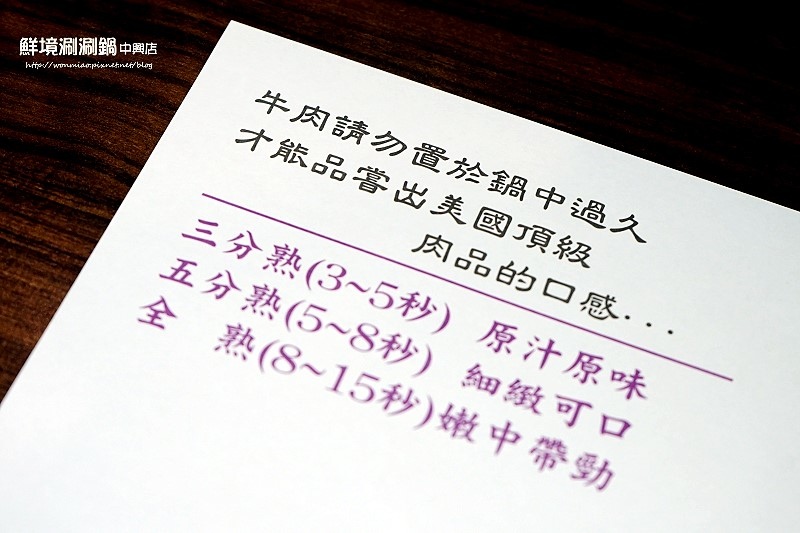 鮮境涮涮鍋中興店
http://wonmiao.pixnet.net/blog
牛肉請勿置於鍋中過久
才能品嘗出美國頂級
肉品的口感...
三分熟(3~5秒) 原汁原味
五分熟(5~8秒) 細緻可口
全 熟(8~15秒)嫩中帶勁